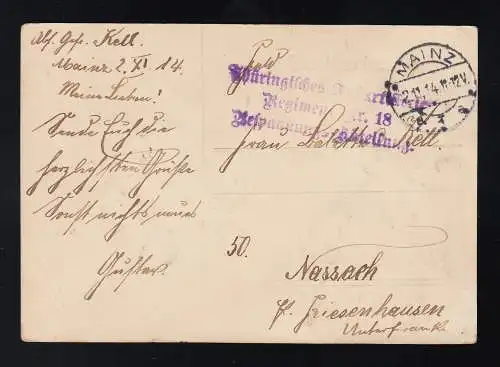 Abs. Gefr. Kell.
Mainz 2. XI 14.
Meine Lieben!
Sende Euch die
herzlichsten Grüße
Sonst nichts neues
Gustav.
Feld
Thüringisches
Regiment Nr. 18
Bespannungs-Abteilung.
MAINZ
2.11.14.11-12V.
Frau Kell.
50.
Nassach
P. Friesenhausen
Unterfranken